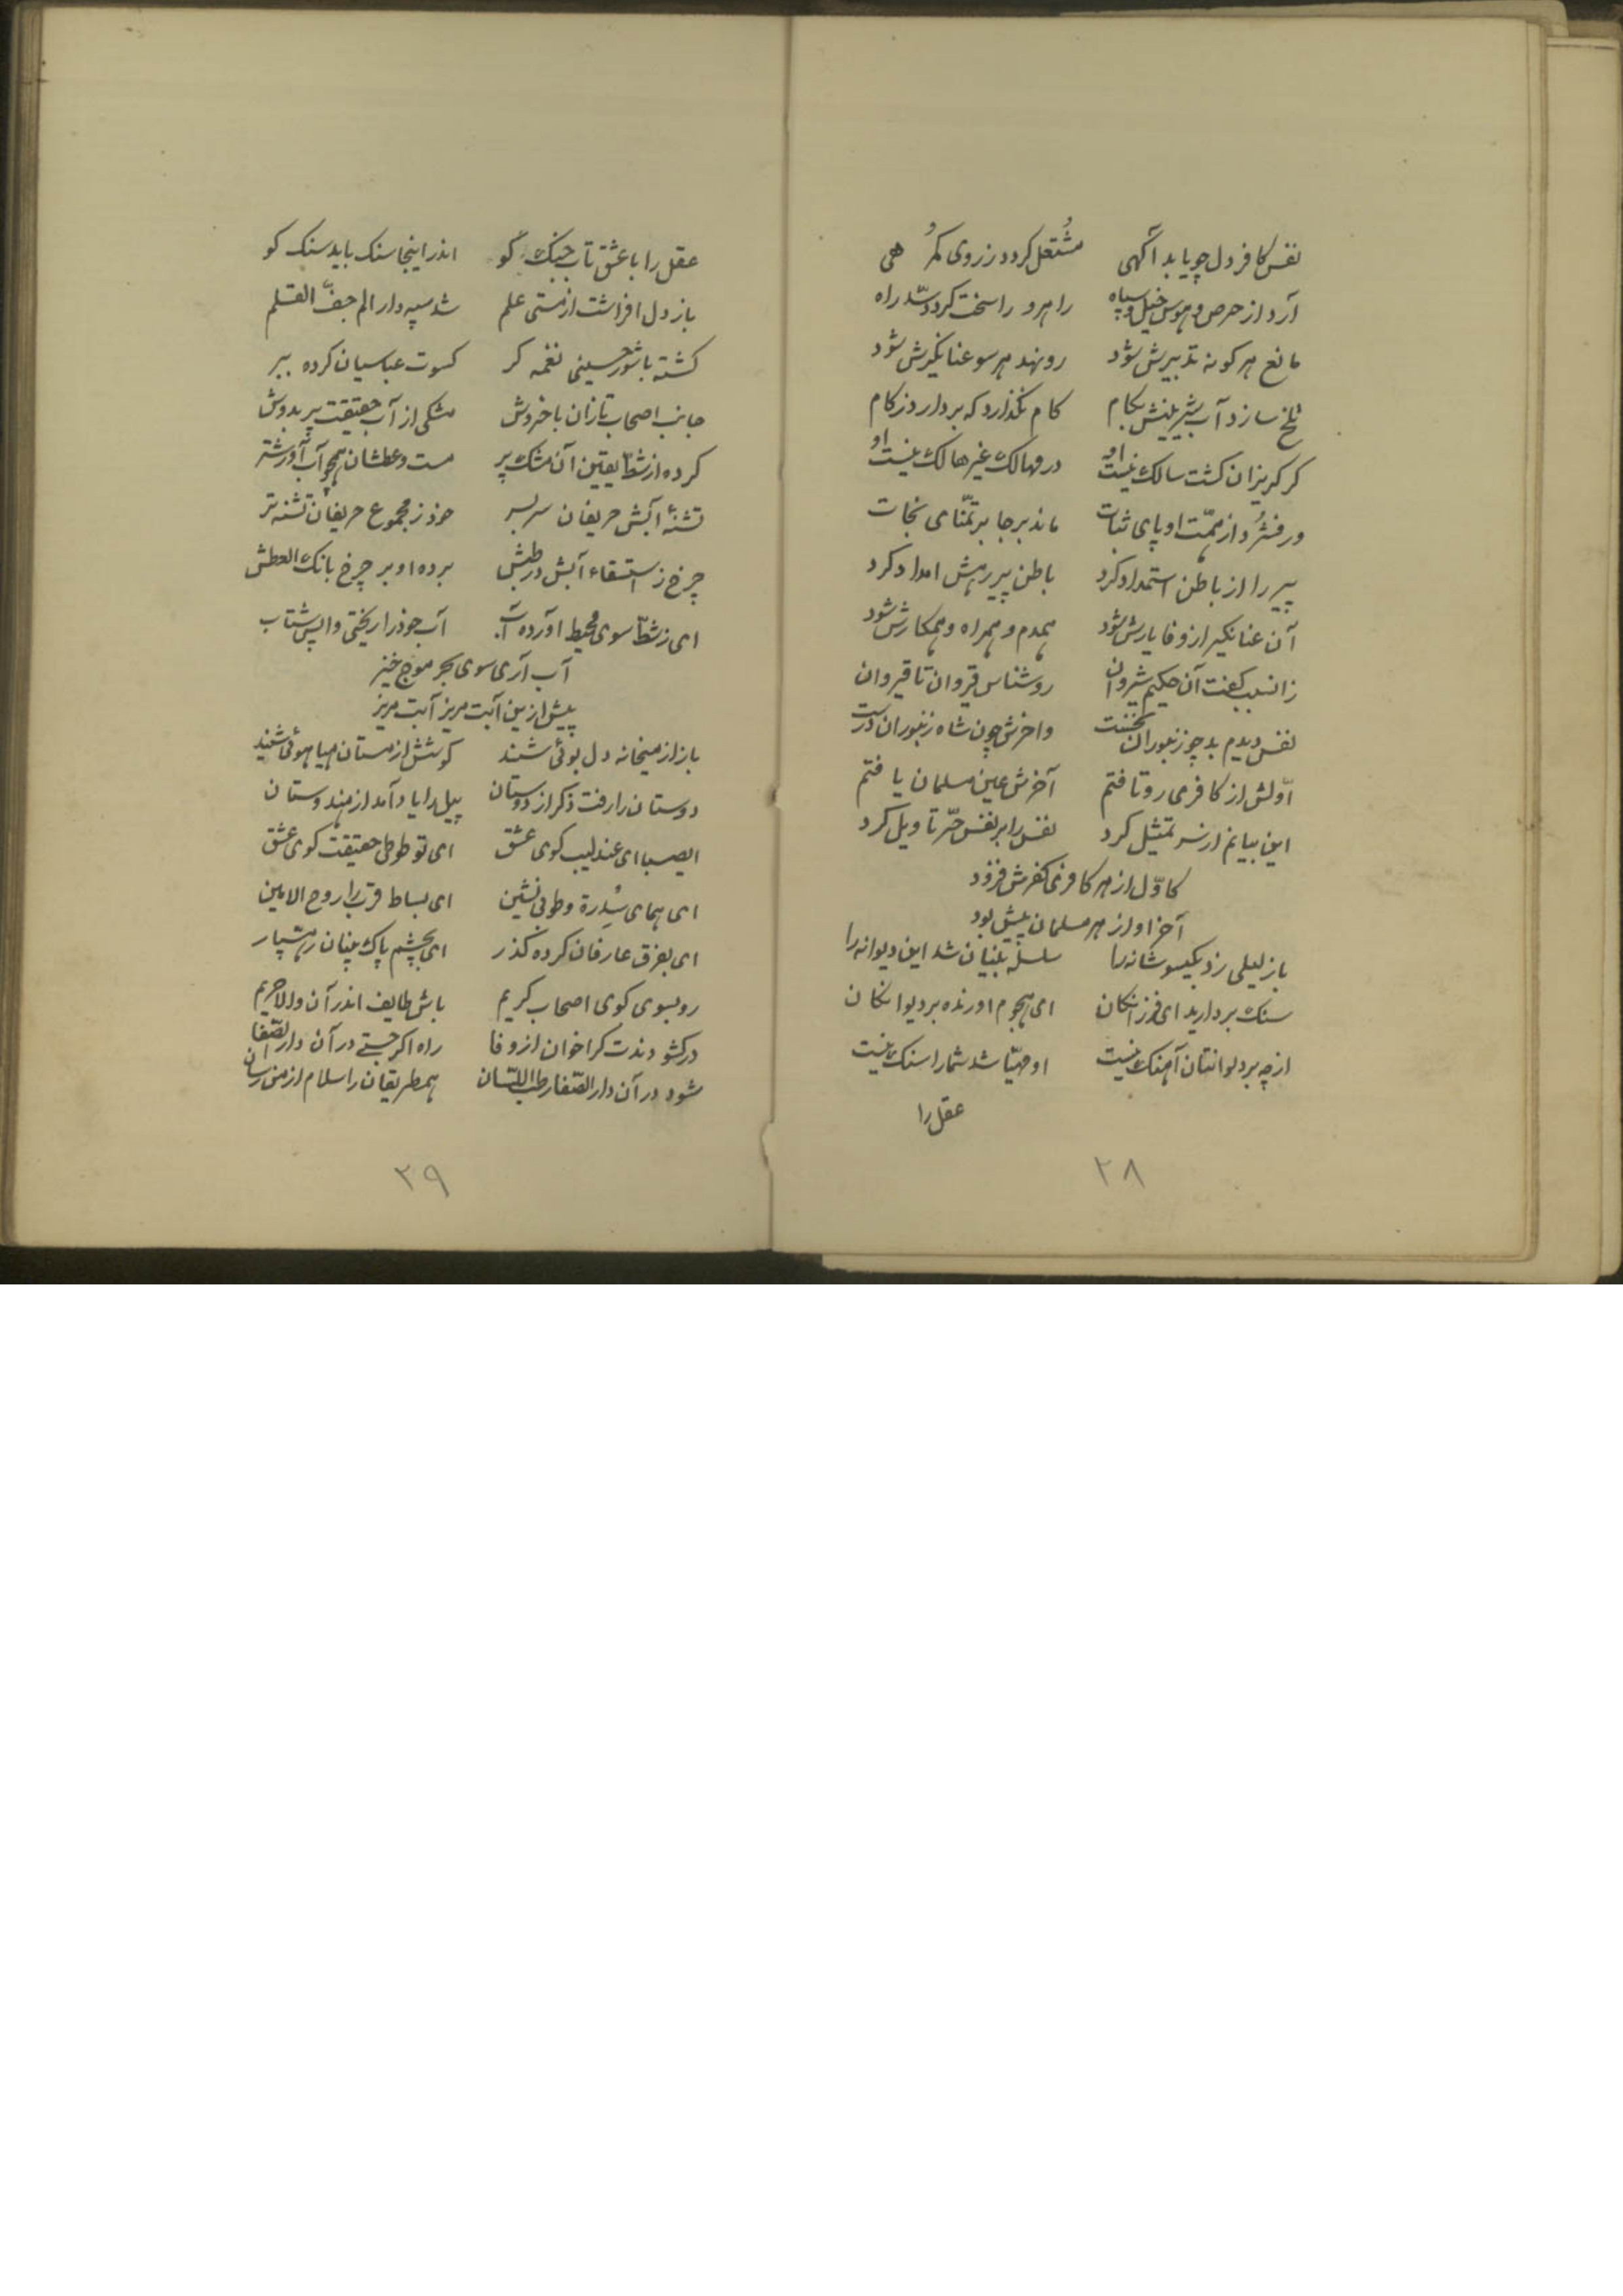 نفس کافر دل چو یابد آگهی مشتعل کردد ز روی کمرهی
آرد از حرص و هوس خیل و سپاه راهرو را سخت کردد سدّ راه
مانع هر کونه تدبیرش شود رو نهد هر سو عنانکیرش شود
تلخ سازد آب شیرینش بکام کام نکذارد که بردارد ز کام
کر کریزان کشت سالک نیست او در مهالک غیر هالک نیست او
ور فشرد از همّت او پای ثبات ماند بر جا بر تمنّای نجات
پیر را از باطن استمداد کرد باطن پیر رهش امداد کرد
آن عنانکیر از وفا یارش شود همدم و همراه و همکارش شود
زانسبب کفت آن حکیم شیروان روشناس قیروان تا قیروان
نفس دیدم بد چو زنبوران نخست واخرش چون شاه زنبوران درست
اوّلش از کافری رو تافتم آخرش عین مسلمان یافتم
این بیانم از سر تمثیل کرد نفس را بر نفس حرّ تاویل کرد
کاوّل از هر کافری کفرش فزود
آخر او از هر مسلمان پیش بود
باز لیلی زد بکیسو شانه را سلسله جنبان شد این دیوانه را
سنک بردارید ای فرزانکان ای هجوم اورنده بر دیوانکان
از چه بر دیوانتان آهنک نیست او مهیّا شد شما را سنک نیست
عقل را
۲۸
عقل را با عشق تاب جنک کو اندر اینجا سنک باید سنک کو
باز دل افراشت از مستی علم شد سپهدار الم جفّ القلم
کشته با شور حسینی نغمه کر کسوت عباسیان کرده ببر
جانب اصحاب تازان با خروش مشکی از آب حقیقت پر بدوش
کرده از شطّ یقین آن مشک پر مست و عطشان همچو آب آور شتر
تشنهٔ آبش حریفان سربسر خود ز مجموع حریفان تشنه تر
چرخ ز استسقاء آبش در طپش برده او بر چرخ بانک العطش
ای ز شطّ سوی محیط اورده آب آب خود را ریختی واپس شتاب
آب آری سوی بحر موج خیز
پیش ازین آبت مریز آبت مریز
باز از میخانه دل بوئی شنید کوشش از مستان هیاهوئی شنید
دوستان را رفت ذکر از دوستان پیل را یاد آمد از هندوستان
ایصبا ای عندلیب کوی عشق ای تو طوطی حقیقت کوی عشق
ای همای سدرة و طوبی نشین ای بساط قرب را روح الامین
ای بفرق عارفان کرده کذر ای بچشم پاک بینان رهسپار
رو بسوی کوی اصحاب کریم باش طایف اندر آن والا حریم
در کشودندت کر اخوان از وفا راه اکر جستی در آن دار الصّفا
شو در آن دار الصّفا رطب اللّسان همطریقان را سلام از من رسان
۲۹